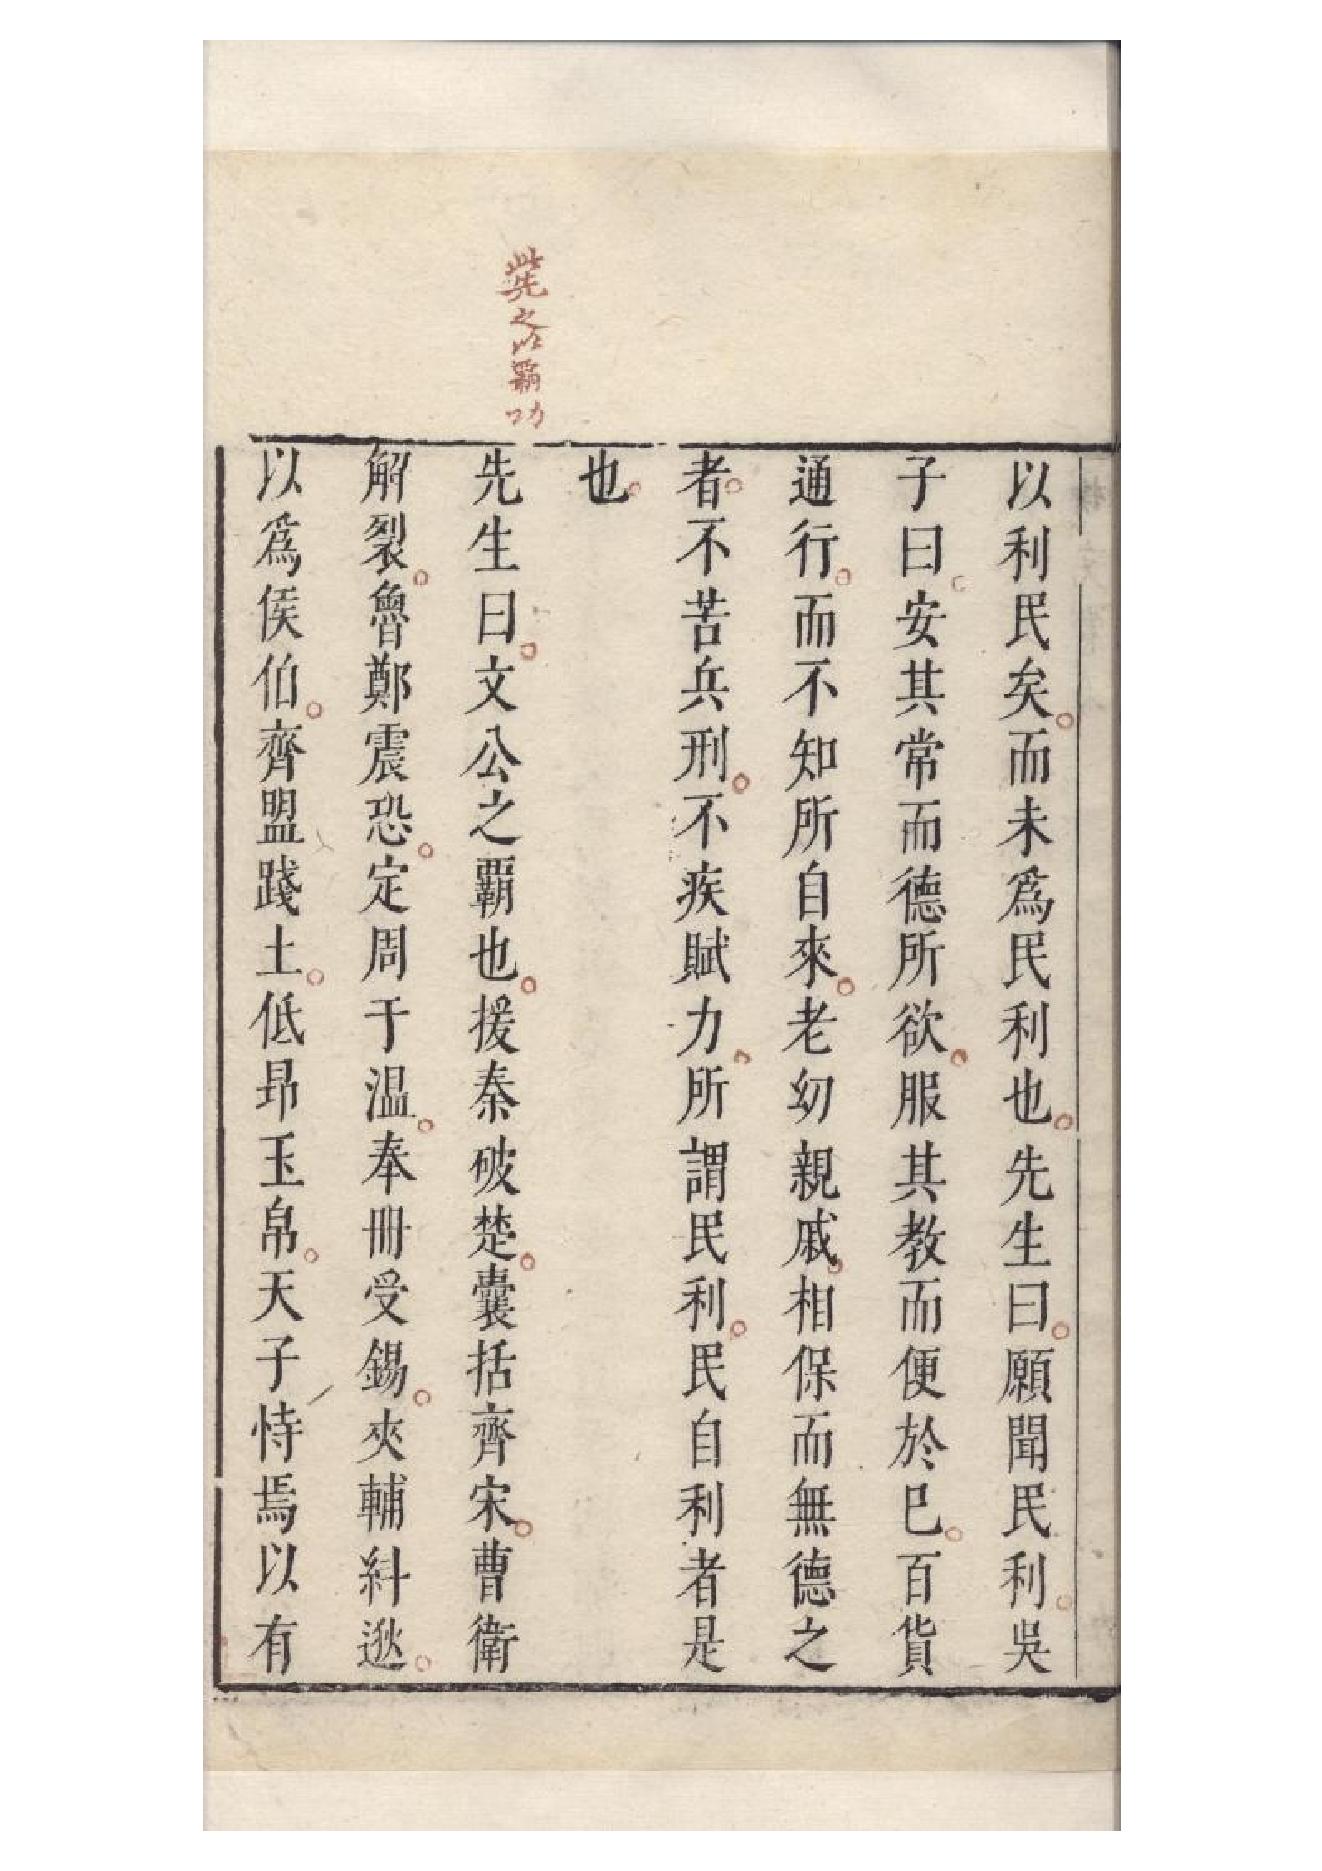 以利民矣而未爲民利也先生曰願聞民利吳
子曰安其常而德所欲服其教而便於已百貨
通行而不知所自來老幼親戚相保而無德之
者不苦兵刑不疾賦力所謂民利民自利者是
也
此先之以霸功
先生曰文公之霸也援秦破楚囊括齊宋曹衛
解裂魯鄭震恐定周于温奉冊受錫夾輔糾逖
以爲侯伯齊盟踐土低昂玉帛天子恃焉以有